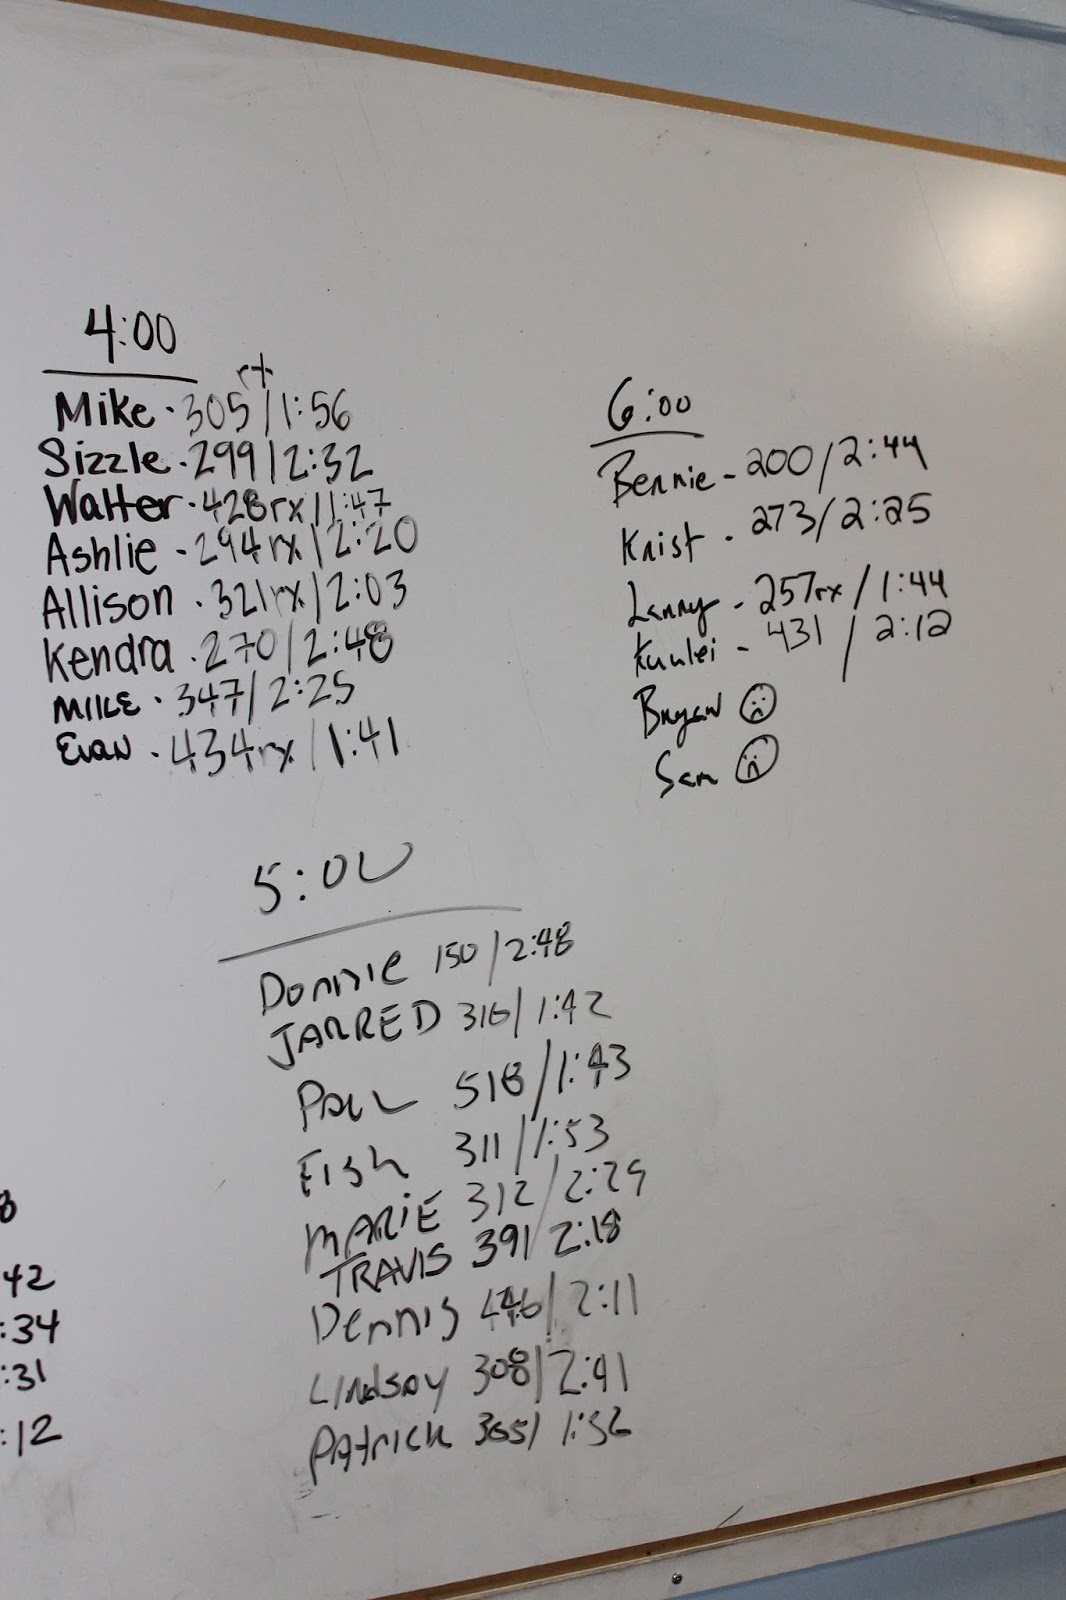 4:00
rx
Mike · 305 / 1:56
Sizzle · 299 / 2:32
Walter · 428rx / 1:47
Ashlie - 294rx / 2:20
Allison · 321rx / 2:03
Kendra · 270 / 2:48
MIKE · 347 / 2:25
Evan · 434rx / 1:41
6:00
Bennie - 200 / 2:44
Knist - 273 / 2:25
Lanny - 257rx / 1:44
Kuulei - 431 / 2:12
Bryan ☹
Sam ☹
5:00
Donnie 150 / 2:48
JARRED 316 / 1:42
PAUL 518 / 1:43
FISH 311 / 1:53
MARIE 312 / 2:29
TRAVIS 391 / 2:18
Dennis 446 / 2:11
Lindsay 308 / 2:41
PAtrick 365 / 1:36
8
42
:34
:31
:12